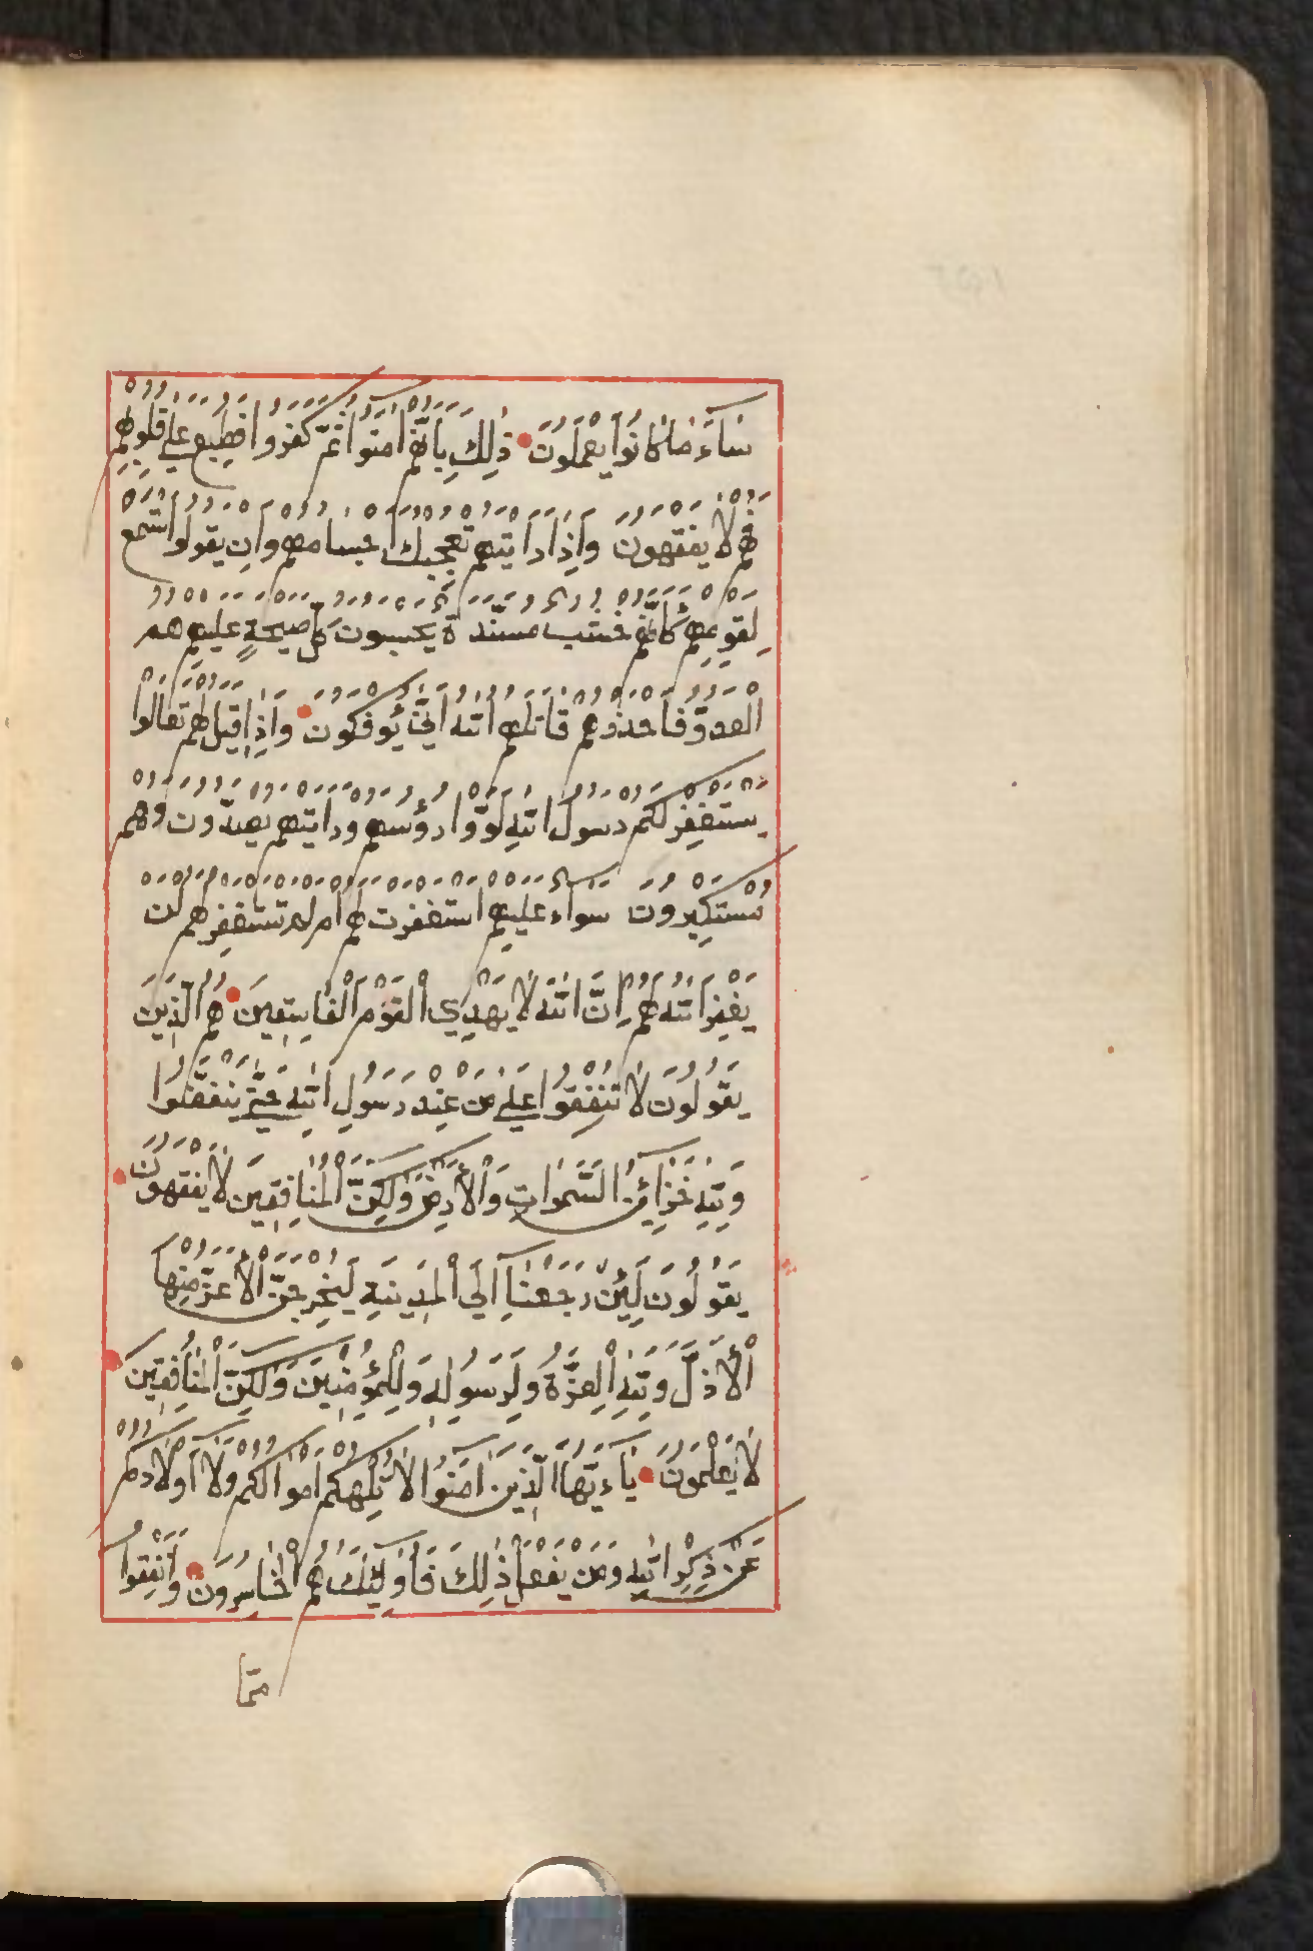 سَآءَ مَا كَانُوا يَعْمَلُونَ ذٰلِكَ بِاَنَّهُمْ اٰمَنُوا ثُمَّ كَفَرُوا فَطُبِعَ عَلٰي قُلُوبِهِمْ
فَهُمْ لَا يَفْقَهُونَ وَاِذَا رَاَيْتَهُمْ تُعْجِبُكَ اَجْسَامُهُمْ وَاِنْ يَقُولُوا تَسْمَعْ
لِقَوْلِهِمْ كَاَنَّهُمْ خُشُبٌ مُسَنَّدَةٌ يَحْسَبُونَ كُلَّ صَيْحَةٍ عَلَيْهِمْ هُمُ
الْعَدُوُّ فَاحْذَرْهُمْ قَاتَلَهُمُ اللهُ اَنّٰي يُؤْفَكُونَ وَاِذَا قِيلَ لَهُمْ تَعَالَوْا
يَسْتَغْفِرْ لَكُمْ رَسُولُ اللهِ لَوَّوْا رُؤُسَهُمْ وَرَاَيْتَهُمْ يَصُدُّونَ وَهُمْ
مُسْتَكْبِرُونَ سَوَآءٌ عَلَيْهِمْ اَسْتَغْفَرْتَ لَهُمْ اَمْ لَمْ تَسْتَغْفِرْ لَهُمْ لَنْ
يَغْفِرَ اللهُ لَهُمْ اِنَّ اللهَ لَا يَهْدِي الْقَوْمَ الْفَاسِقِينَ هُمُ الَّذِينَ
يَقُولُونَ لَا تُنْفِقُوا عَلٰي مَنْ عِنْدَ رَسُولِ اللهِ حَتّٰي يَنْفَضُّوا
وَلِلّٰهِ خَزَآئِنُ السَّمٰوَاتِ وَالْاَرْضِ وَلٰكِنَّ الْمُنَافِقِينَ لَا يَفْقَهُونَ
يَقُولُونَ لَئِنْ رَجَعْنَآ اِلَي الْمَدِينَةِ لَيُخْرِجَنَّ الْاَعَزُّ مِنْهَا
الْاَذَلَّ وَلِلّٰهِ الْعِزَّةُ وَلِرَسُولِهِ وَلِلْمُؤْمِنِينَ وَلٰكِنَّ الْمُنَافِقِينَ
لَا يَعْلَمُونَ يَاءَيُّهَا الَّذِينَ اٰمَنُوا لَا تُلْهِكُمْ اَمْوَالُكُمْ وَلَآ اَوْلَادُكُمْ
عَنْ ذِكْرِ اللهِ وَمَنْ يَفْعَلْ ذٰلِكَ فَاُولٰئِكَ هُمُ الْخَاسِرُونَ وَاَنْفِقُوا
ممّا